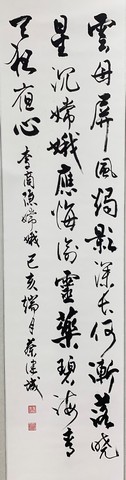 雲母屏風燭影深長河漸落曉
星沉嫦娥應悔偷靈藥碧海青
天夜夜心 李商隱嫦娥 己亥端月 蔡建城